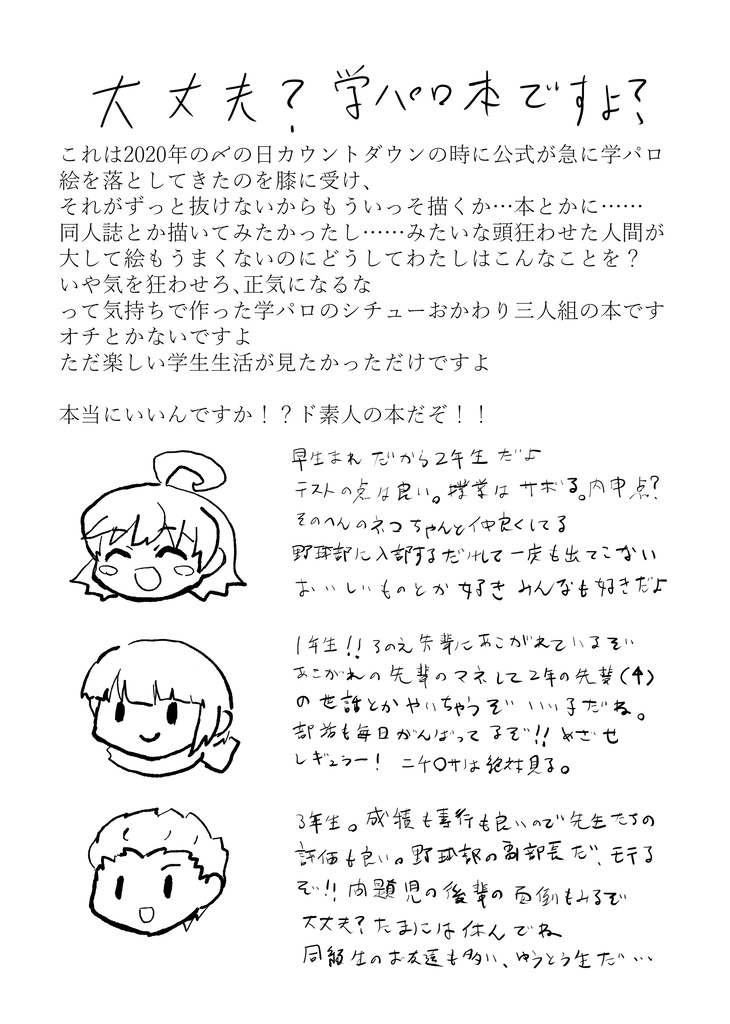 大丈夫？学パロ本ですよ？
これは2020年の〆の日カウントダウンの時に公式が急に学パロ
絵を落としてきたのを膝に受け、
それがずっと抜けないからもういっそ描くか…本とかに……
同人誌とか描いてみたかったし……みたいな頭狂わせた人間が
大して絵もうまくないのにどうしてわたしはこんなことを？
いや気を狂わせろ、正気になるな
って気持ちで作った学パロのシチューおかわり三人組の本です
オチとかないですよ
ただ楽しい学生生活が見たかっただけですよ
本当にいいんですか！？ド素人の本だぞ！！
早生まれだから2年生だよ
テストの点は良い。授業はサボる。内申点？
そのへんのネコちゃんと仲良くしてる
野球部に入部するだけして一度も出てこない
おいしいものとか好き みんなも好きだよ
1年生!! 3のえ先輩にあこがれているぞ
あこがれの先輩のマネして2年の先輩(4)
の世話とかやいちゃうぞ いい子だね。
部活も毎日がんばってるぞ!! めざせ
レギュラー！ ニチ〇サは絶対見る。
3年生。成績も素行も良いので先生たちの
評価も良い。野球部の副部長だ、モテる
ぞ!! 問題児の後輩の面倒もみるぞ
大丈夫？たまには休んでね
同級生のお友達も多い、ゆうとう生だ…